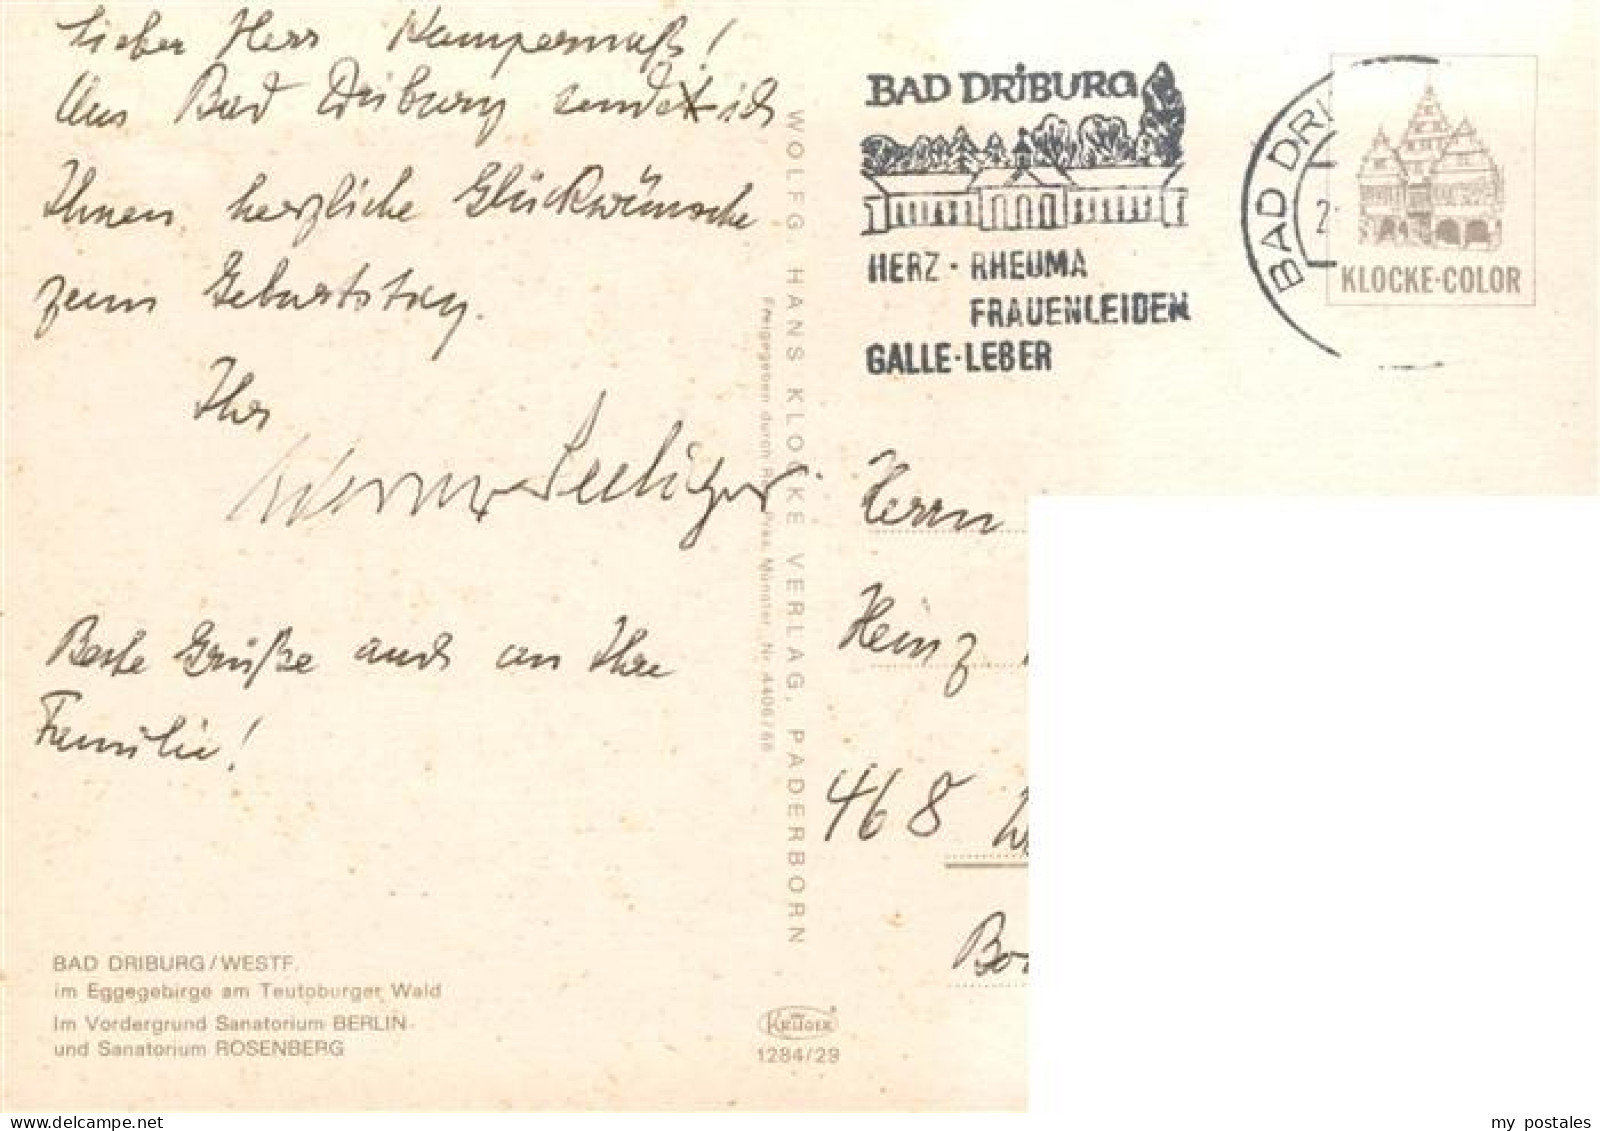 Lieber Herr Kampermaß!
Aus Bad Driburg sende ich
Ihnen herzliche Glückwünsche
zum Geburtstag.
Ihr
Werner Seeliger
Beste Grüße auch an Ihre
Familie!
BAD DRIBURG/WESTF.
im Eggegebirge am Teutoburger Wald
Im Vordergrund Sanatorium BERLIN
und Sanatorium ROSENBERG
WOLFG. HANS KLOCKE VERLAG, PADERBORN
Freigegeben durch Reg. Präs. Münster Nr. 4406/68
KRÜGER
1284/29
BAD DRIBURG
HERZ - RHEUMA
FRAUENLEIDEN
GALLE-LEBER
BAD DRI
2
KLOCKE-COLOR
Herrn
Heinz
468
my postales